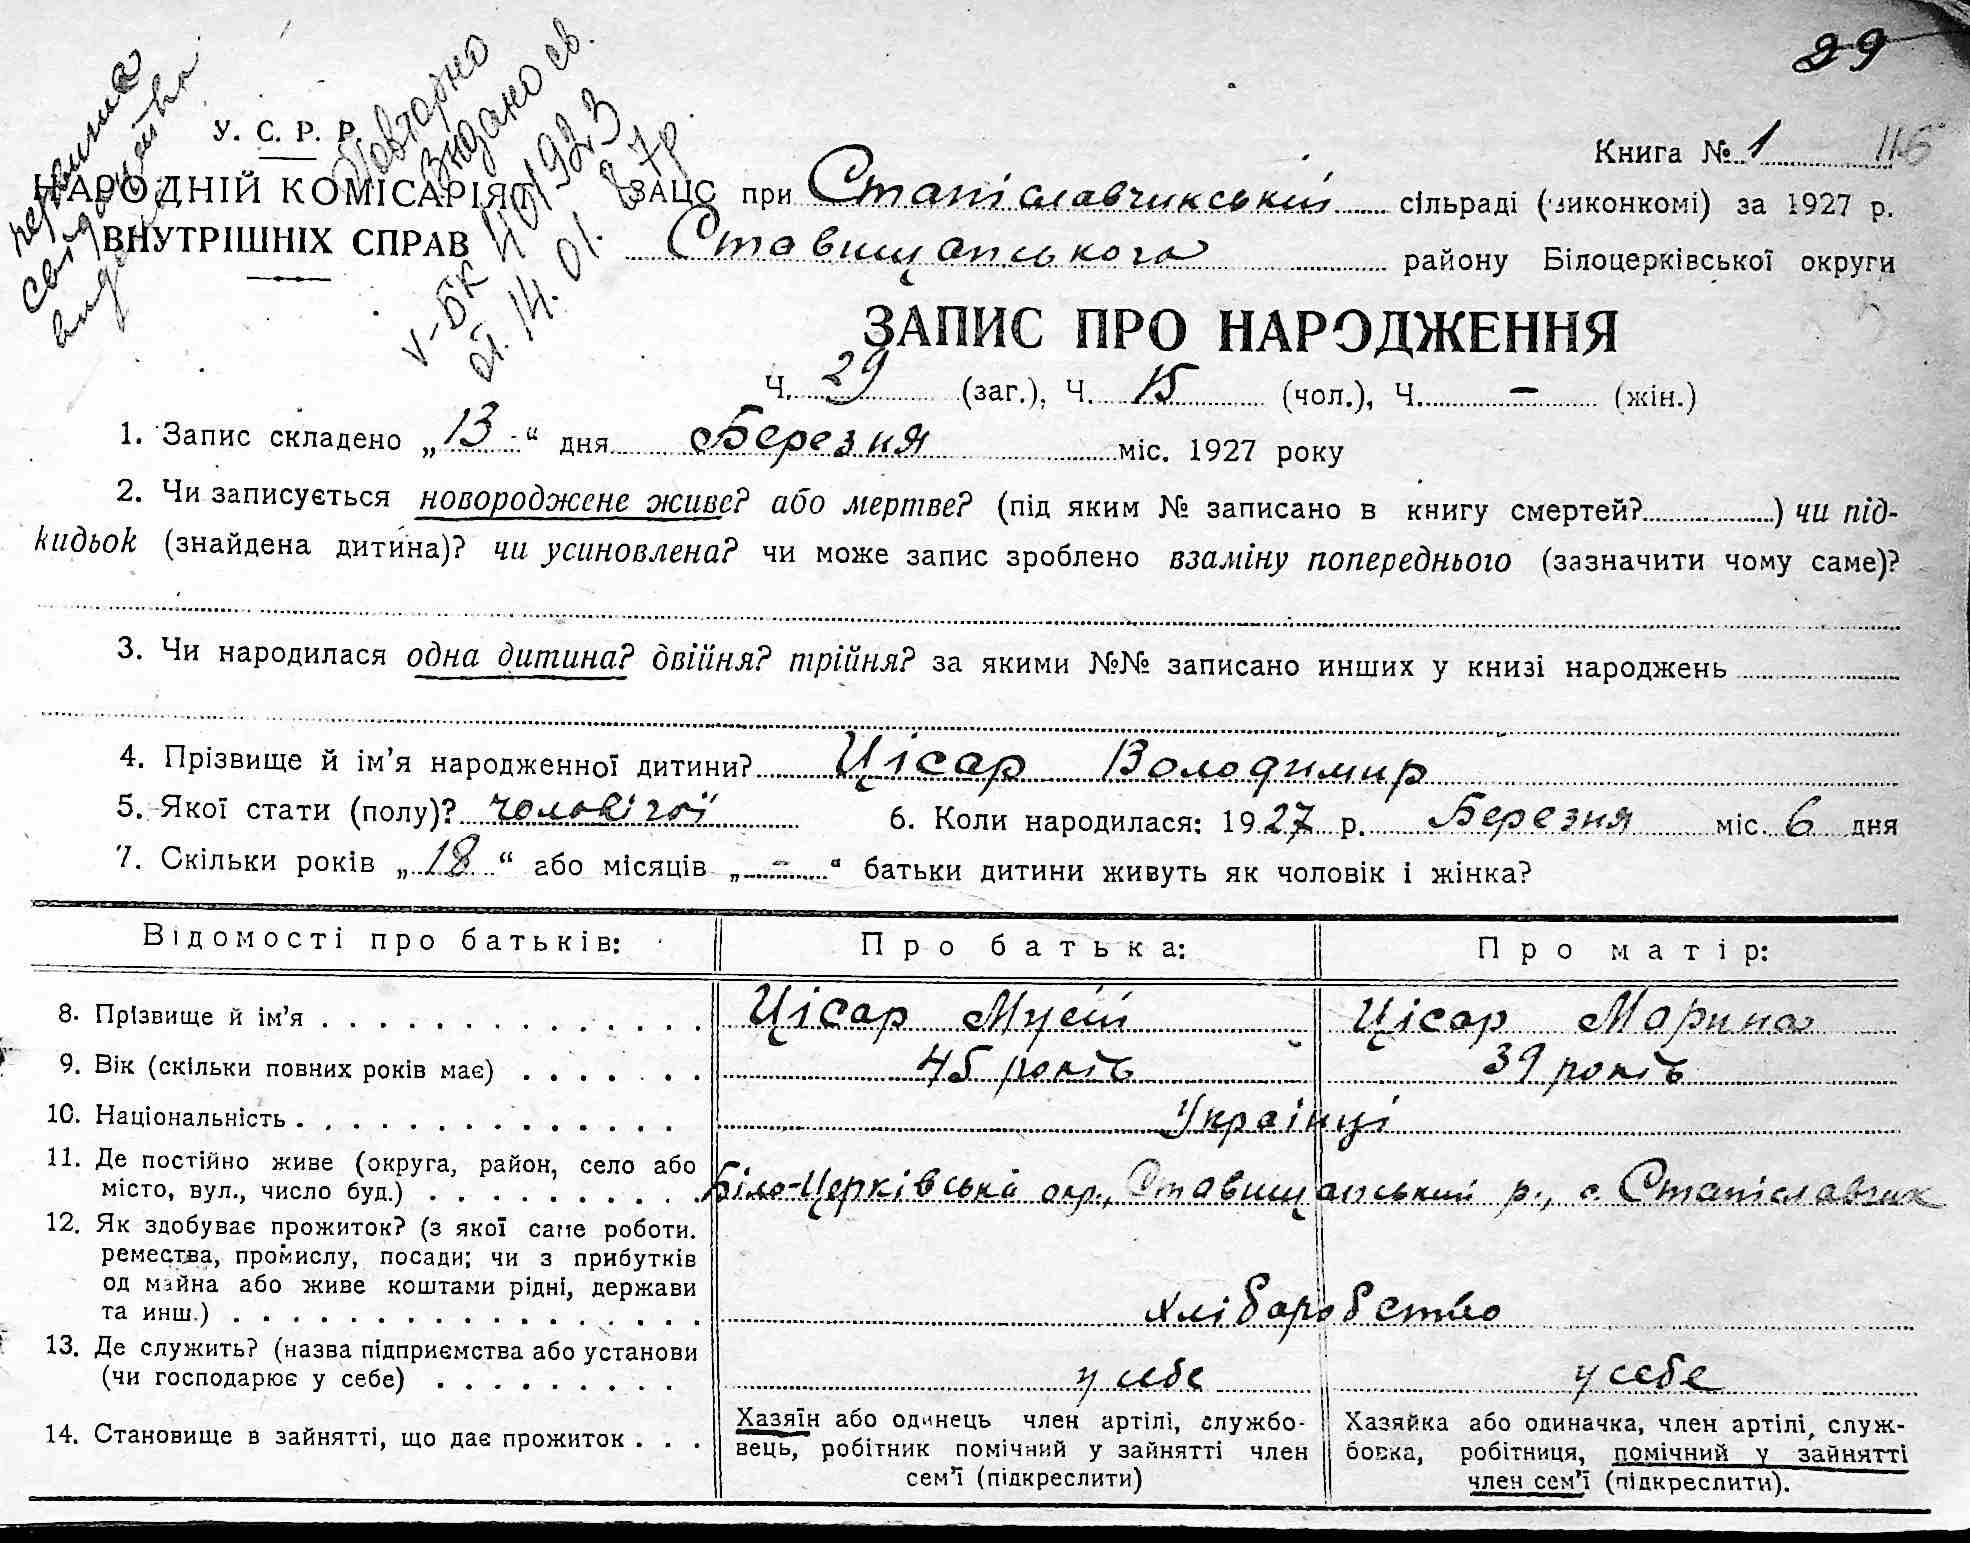 29
Книга № 1 116
первинна
свідоцтва
Повторно
видано св.
V-БК 401923
от. 14.01.87р.
У. С. Р. Р.
НАРОДНІЙ КОМІСАРІЯТ
ВНУТРІШНІХ СПРАВ
ЗАЦС при Станіславчикській сільраді (виконкомі) за 1927 р.
Ставищанського району Білоцерківської округи
ЗАПИС ПРО НАРОДЖЕННЯ
Ч. 29 (заг.), Ч. 15 (чол.), Ч. – (жін.)
1. Запис складено „13“ дня Березня міс. 1927 року
2. Чи записується новороджене живе? або мертве? (під яким № записано в книгу смертей? ) чи під-
кидьок (знайдена дитина)? чи усиновлена? чи може запис зроблено взаміну попереднього (зазначити чому саме)?
3. Чи народилася одна дитина? двійня? трійня? за якими №№ записано инших у книзі народжень
4. Прізвище й ім’я народженної дитини? Цісар Володимир
5. Якої стати (полу)? чоловічої 6. Коли народилася: 1927 р. Березня міс. 6 дня
7. Скільки років „18“ або місяців „–“ батьки дитини живуть як чоловік і жінка?
Відомості про батьків: Про батька: Про матір:
8. Прізвище й ім’я Цісар Мусій Цісар Марина
9. Вік (скільки повних років має) 45 років 39 років
10. Національність Українці
11. Де постійно живе (округа, район, село або
місто, вул., число буд.) Біло-Церківська окр., Ставищанський р., с. Станіславчик
12. Як здобуває прожиток? (з якої саме роботи.
ремества, промислу, посади; чи з прибутків
од майна або живе коштами рідні, держави
та инш.) хліборобство
13. Де служить? (назва підприємства або установи
(чи господарює у себе) у себе у себе
14. Становище в зайнятті, що дає прожиток
Хазяїн або одинець член артілі, службо-
вець, робітник помічний у зайнятті член
сем’ї (підкреслити)
Хазяйка або одиначка, член артілі, служ-
бовка, робітниця, помічний у зайнятті
член сем’ї (підкреслити).